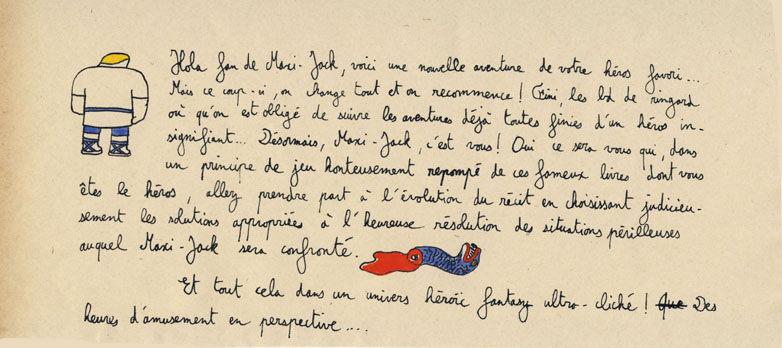 Hola fan de Maxi-Jack, voici une nouvelle aventure de votre héros favori...
Mais ce coup-ci, on change tout et on recommence ! Fini, les bd de ringard
où qu'on est obligé de suivre les aventures déjà toutes finies d'un héros in-
signifiant... Désormais, Maxi-Jack, c'est vous ! Oui ce sera vous qui, dans
un principe de jeu honteusement repompé de ces fameux livres dont vous
êtes le héros, allez prendre part à l'évolution du récit en choisissant judicieu-
sement les solutions appropriées à l'heureuse résolution des situations périlleuses
auquel Maxi-Jack sera confronté.
Et tout cela dans un univers héroïc fantasy ultro-cliché ! Que Des
heures d'amusement en perspective....